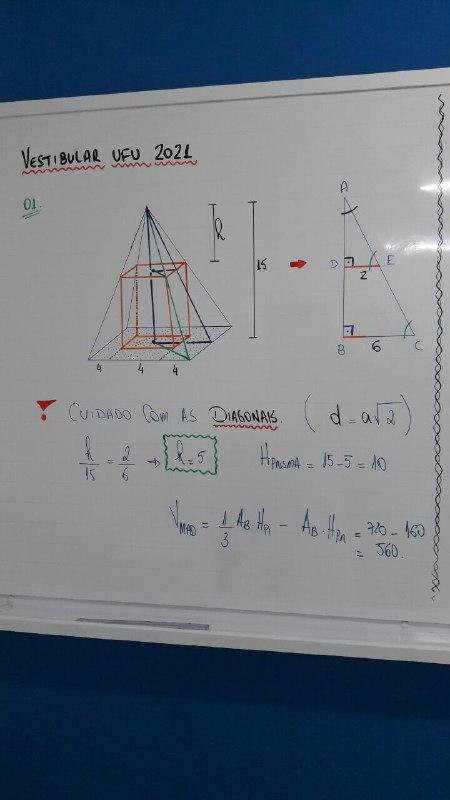 VESTIBULAR UFU 2021
01.
h
15
A
D
E
2
B
6
C
4 4 4
! CUIDADO COM AS DIAGONAIS. (d = a√2)
h/15 = 2/6 → h = 5
HPRISMA = 15 - 5 = 10
VMAD = 1/3 AB · HPi - AB · HPR = 720 - 160
= 560.